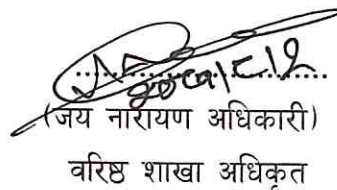 (जय नारायण अधिकारी)
वरिष्ठ शाखा अधिकृत